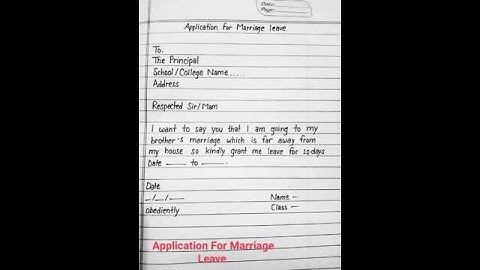 Date:
Page:
Application For Marriage leave
To,
The Principal
School/College Name.....
Address
Respected Sir/Mam
I want to say you that I am going to my
brother's marriage which is far away from
my house. so kindly grant me leave for 10 days
Date — to —.
Date
_/_/__
Name -
obediently
Class -
Application For Marriage
Leave